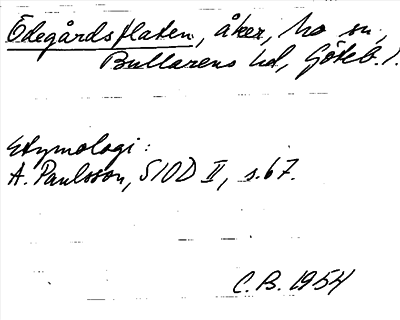 Ödegårdsflaten, åker, Mo sn,
Bullarens hd, Göteb. l.
Etymologi:
A. Paulsson, SIOD II, s. 67.
C. B. 1954